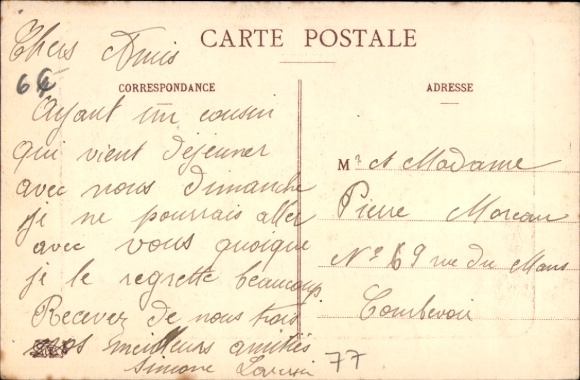 CARTE POSTALE
Chers Amis
6€
CORRESPONDANCE
Ayant un cousin
qui vient déjeuner
avec nous dimanche
je ne pourrais aller
avec vous quoique
je le regrette beaucoup
Recevez de nous trois
nos meilleurs amitiés
Simone
77
ADRESSE
Mr et Madame
Pierre Moreau
No 69 rue du Mans
Courbevoie